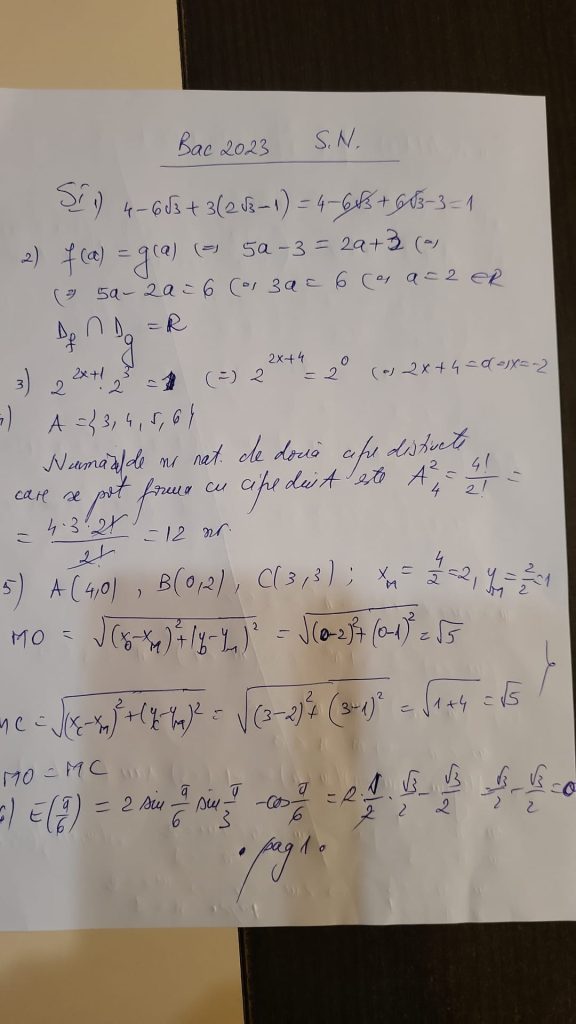 Bac 2023 S.N.
SI 1) 4-6√3 + 3(2√3-1) = 4-6√3+6√3-3=1
2) f(a) = g(a) (=) 5a-3 = 2a+3 (=)
(=) 5a-2a=6 (=) 3a=6 (=) a=2 ∈R
D_f ∩ D_g = R
3) 2^{2x+1}·2^3 = 1 (=) 2^{2x+4} = 2^0 (=) 2x+4=0 (=) x=-2
A = {3, 4, 5, 6}
Numărul de nr nat. de două cifre distincte
care se pot forma cu cifre din A este A_4^2 = 4!/2! =
= 4·3·2!/2! = 12 nr.
5) A(4,0), B(0,2), C(3,3); x_M = 4/2=2, y_M=2/2=1
MO = √((x_O-x_M)^2+(y_O-y_M)^2) = √((0-2)^2+(0-1)^2) = √5
MC = √((x_C-x_M)^2+(y_C-y_M)^2) = √((3-2)^2+(3-1)^2) = √(1+4) = √5
MO = MC
6) E(π/6) = 2 sin π/6 sin π/3 - cos π/6 = 2·1/2·√3/2 - √3/2 √3/2 - √3/2 = 0
. pag 1 .